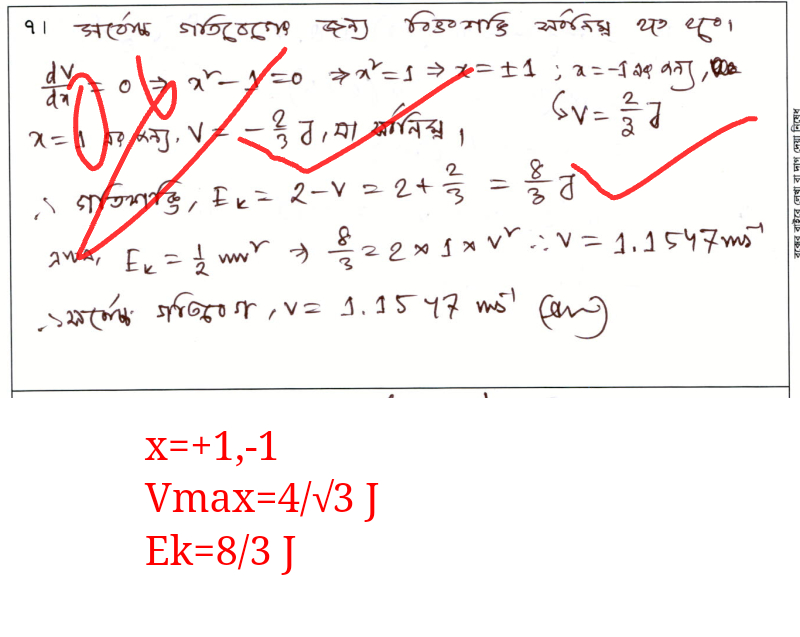 ৭। সর্বোচ্চ গতিবেগের জন্য বিভবশক্তি সর্বনিম্ন হতে হবে।
dV/dx = 0 ⇒ x² - 1 = 0 ⇒ x² = 1 ⇒ x = ±1 ; x = -1 এর জন্য,
↳ V = 2/3 J
x = 1 এর জন্য, V = -2/3 J, যা সর্বনিম্ন।
∴ গতিশক্তি, Ek = 2 - V = 2 + 2/3 = 8/3 J
Ek = 1/2 mv² ⇒ 8/3 = 2 × 1 × v² ∴ v = 1.1547 ms⁻¹
∴ সর্বোচ্চ গতিবেগ, v = 1.1547 ms⁻¹ (Ans)
বক্সের বাইরে লেখা বা দাগ দেয়া নিষেধ
x=+1,-1
Vmax=4/√3 J
Ek=8/3 J